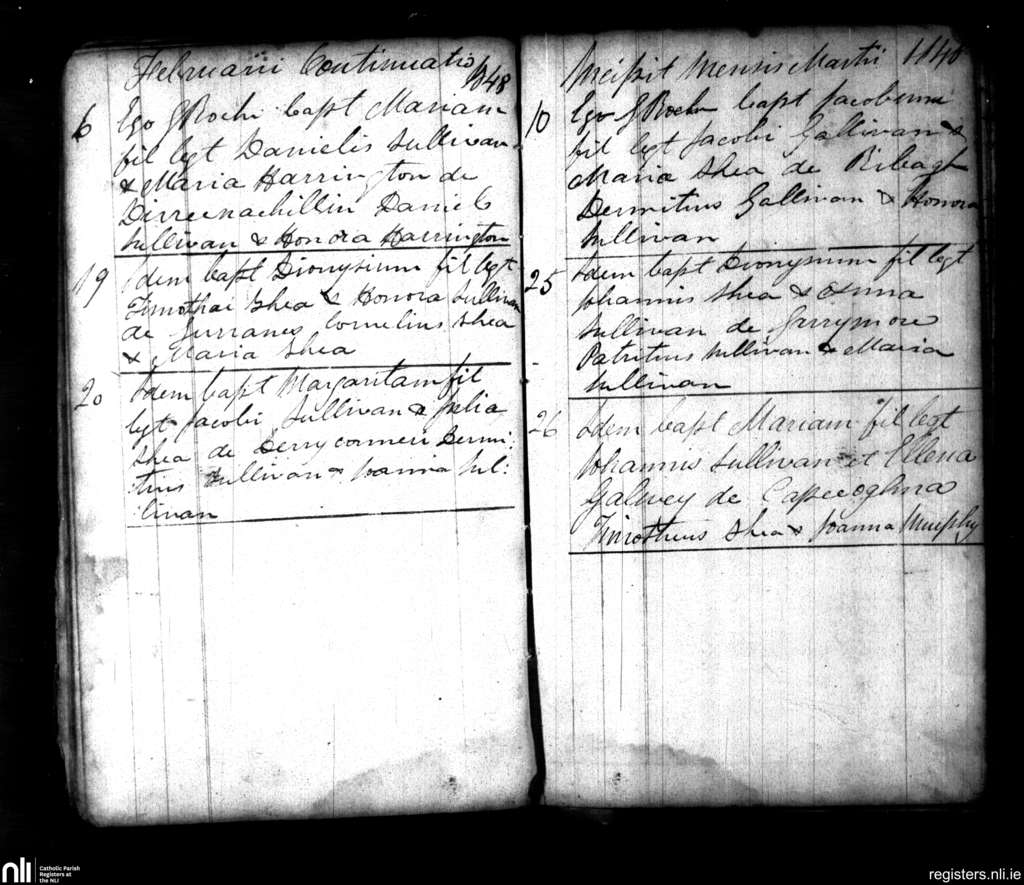 Februarii Continuatio 1848
6 Ego G Roche bapt Mariam
fil lgt Danielis Sullivan
& Maria Harrington de
Dirreenachillin Daniels
Sullivan & Honora Harrington
19 Idem bapt Dionysium fil lgt
Timothai Shea & Honora Sullivan
de Gurranes Cornelius Shea
& Maria Shea
20 Idem bapt Margaritam fil
lgt Jacobi Sullivan & Julia
Shea de Derryconneri Dermi
:tius Sullivan & Joanna Sul:
:livan
Incipit Mensis Martii 1848
10 Ego G Roche bapt Jacobum
fil lgt Jacobi Gallivan &
Maria Shea de Ribeagh
Dermitius Gallivan & Honora
Sullivan
25 Idem bapt Dionysium fil lgt
Johannis Shea & Anna
Sullivan de Gurrymore
Patritius Sullivan & Maria
Sullivan
26 Idem bapt Mariam fil legt
Johannis Sullivan et Ellena
Galwey de
Timotheus Shea & Joanna Murphy
nli Catholic Parish
Registers at
the NLI
registers.nli.ie